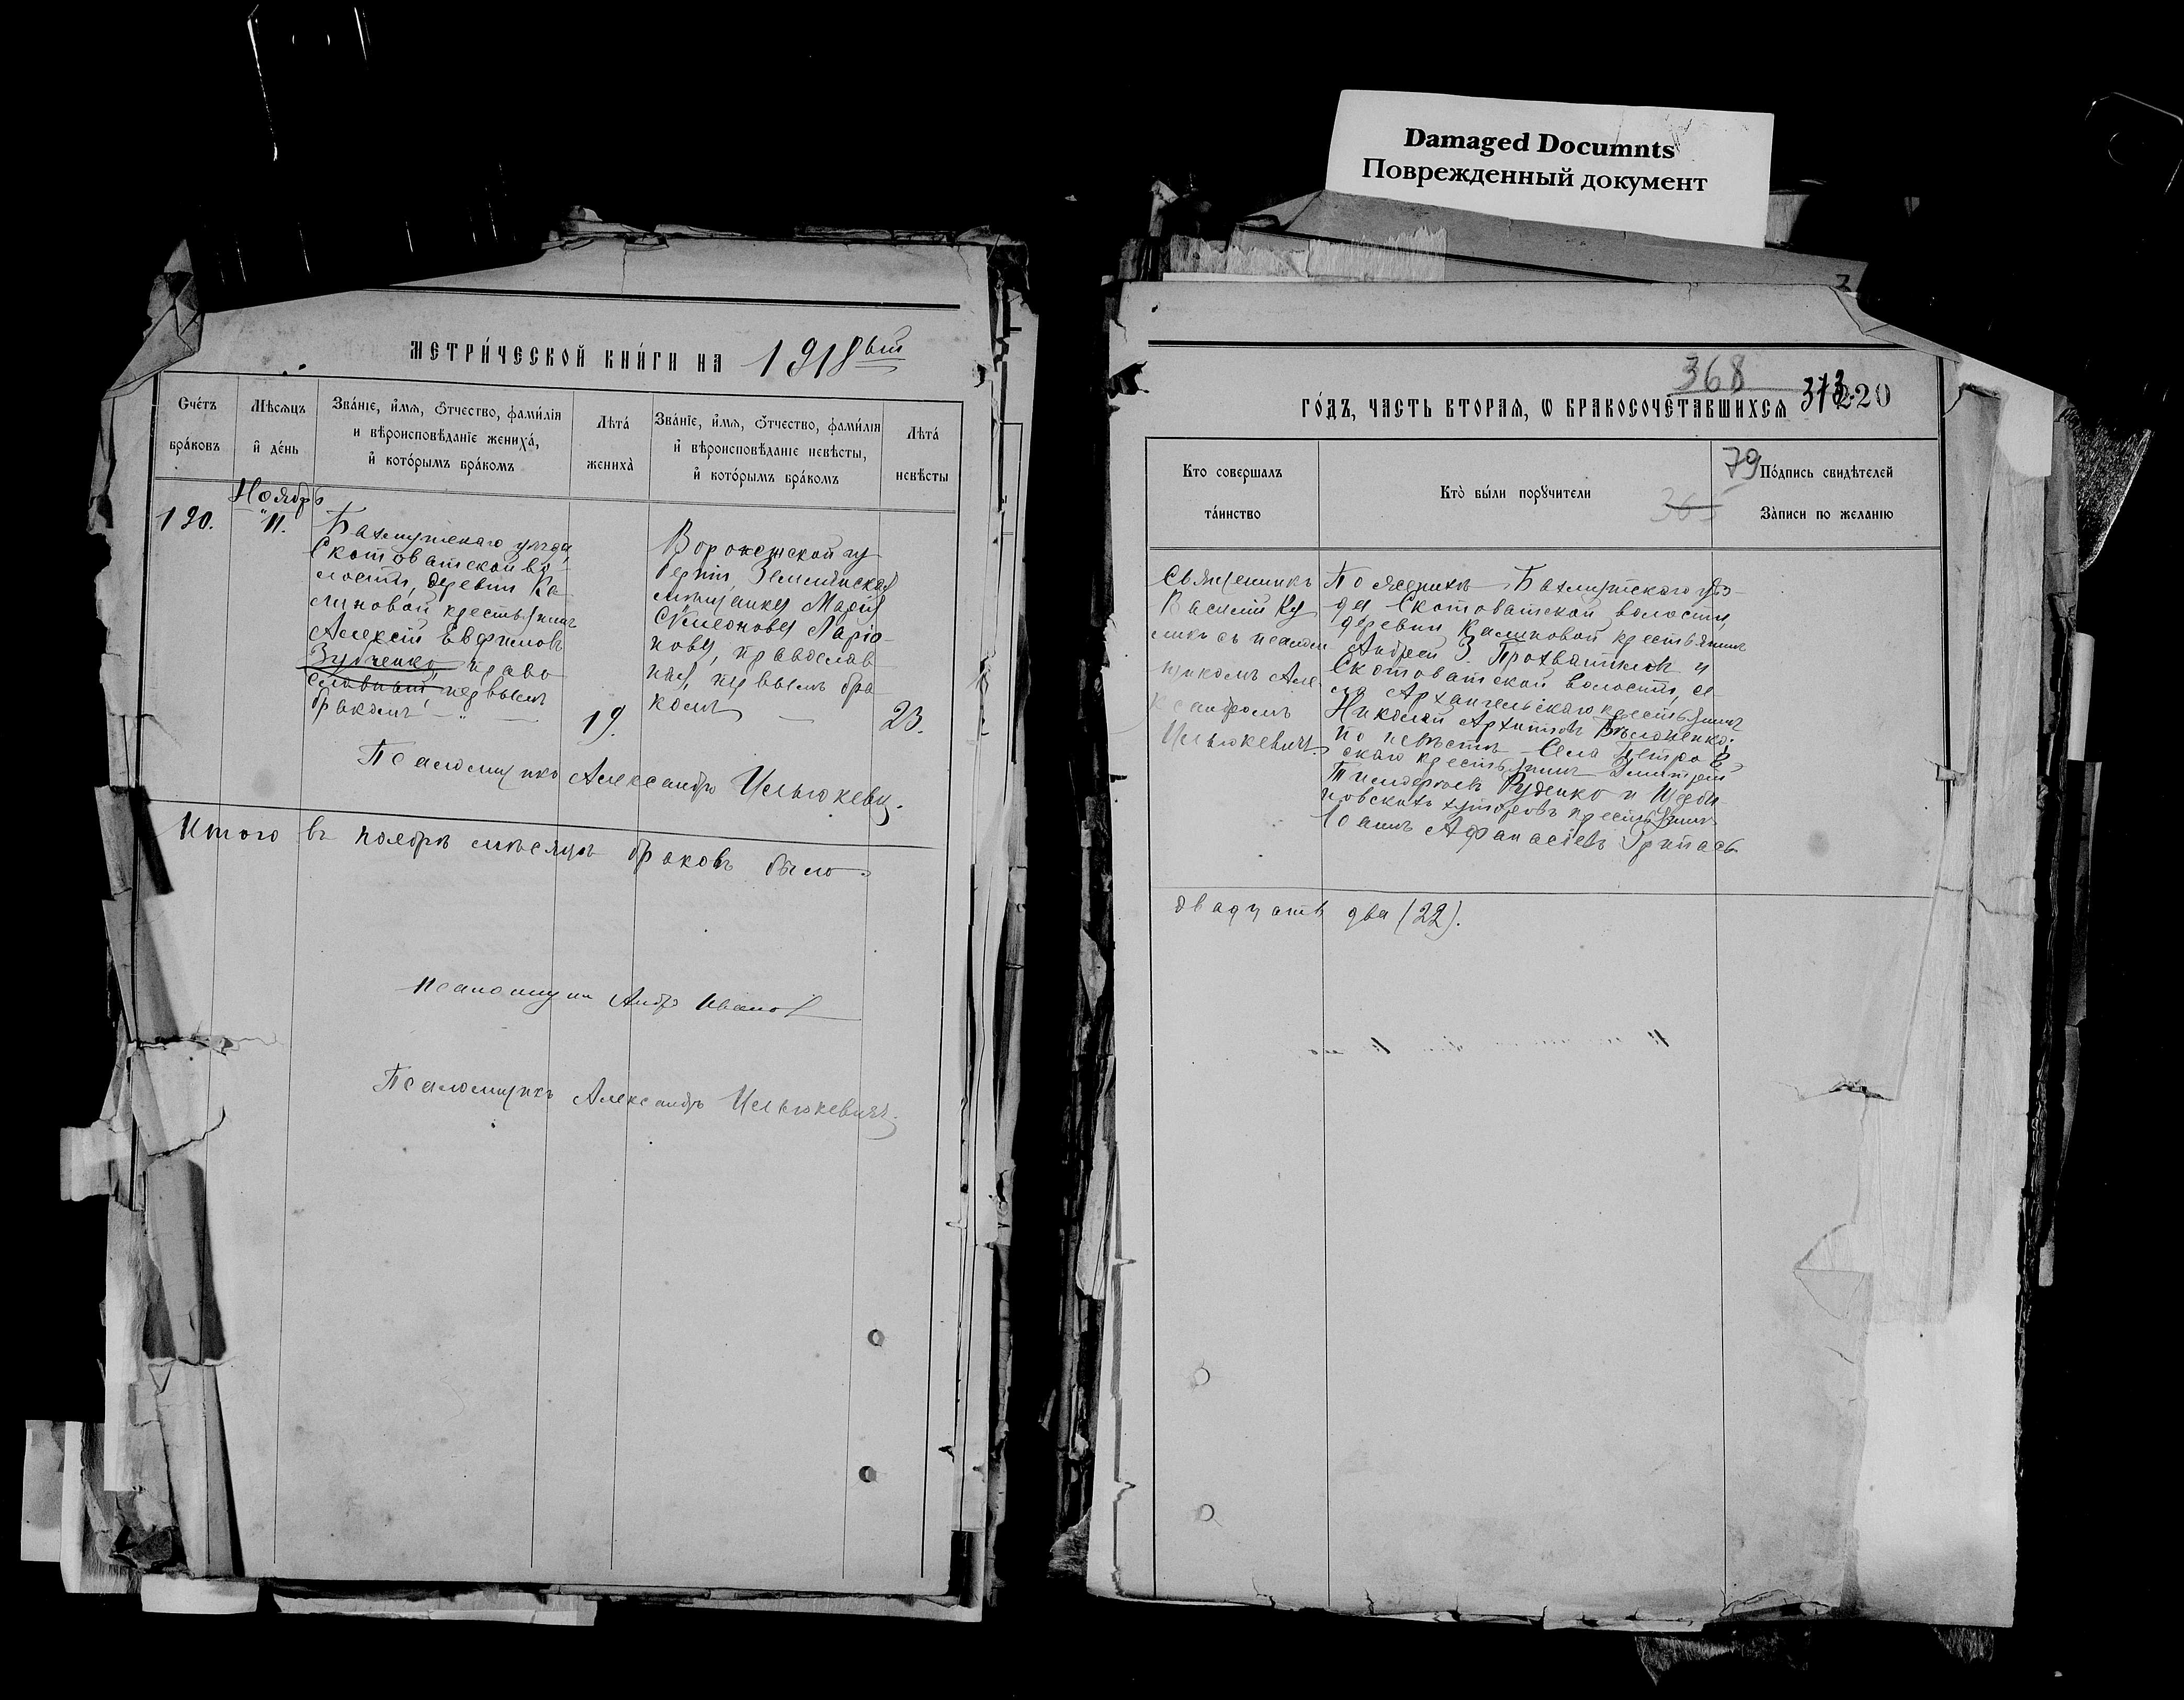 Damaged Documnts
Поврежденный документ
МЕТРИ́ЧЕСКОЙ КНИ́ГИ НА 1918
Сче́тъ бра́ковъ
Мѣсѧцъ и҆ де́нь
Зва́нїе, и҆́мѧ, ѻ҆́тчество, фами́лїѧ
и вѣроисповѣ́данїе жениха́,
и҆ кото́рымъ бра́комъ
Лѣта́ жениха̀
Зва́нїе, и҆́мѧ, ѻ҆́тчество, фами́лїѧ
и҆ вѣроисповѣ́данїе невѣ́сты,
и҆ кото́рымъ бра́комъ
Лѣта́ невѣ́сты
Ноябрь
120.
11.
Бахмутскаго уѣзда,
Скотоватской во-
лости, деревни Ка-
линовой крестьянинъ
Алексѣй Евфимовъ
Зубченко, право
славный, первымъ
бракомъ
19.
Воронежской гу
берніи Землянская
мѣщанка Марія
Симеонова Ларіо-
нова, православ
ная, первымъ бра
комъ
23.
Псаломщикъ Александръ
Итого въ ноябрѣ мѣсяцѣ браковъ было
Псаломщикъ Иванов
Псаломщикъ Александръ
368
220
ГО́ДЪ, ЧАСТЬ ВТОРАѦ, Ѡ БРАКОСОЧЕ́ТАВШИХСѦ
79
365
Кто соверша́лъ та́инство
Кто̀ бы́ли порꙋчи́тели
По́дпись свидѣ́телей
За́писи по жела́нїю
Священникъ
Василій Ку
ликъ съ псалом
щикомъ Але
ксандромъ
По женихѣ Бахмутскаго уѣз-
да Скотоватской волости,
деревни Калиновой крестьянинъ
Андрей З. Прохватиловъ и
Скотоватской волости, се
ла Архангельскаго крестьянинъ
Николай Архиповъ
по невѣстѣ - Села Петров
скаго крестьянинъ Димитрій
Руденко и Щерби
новскихъ хуторовъ крестьянинъ
Іоаннъ Афанасіевъ
двадцать два (22).